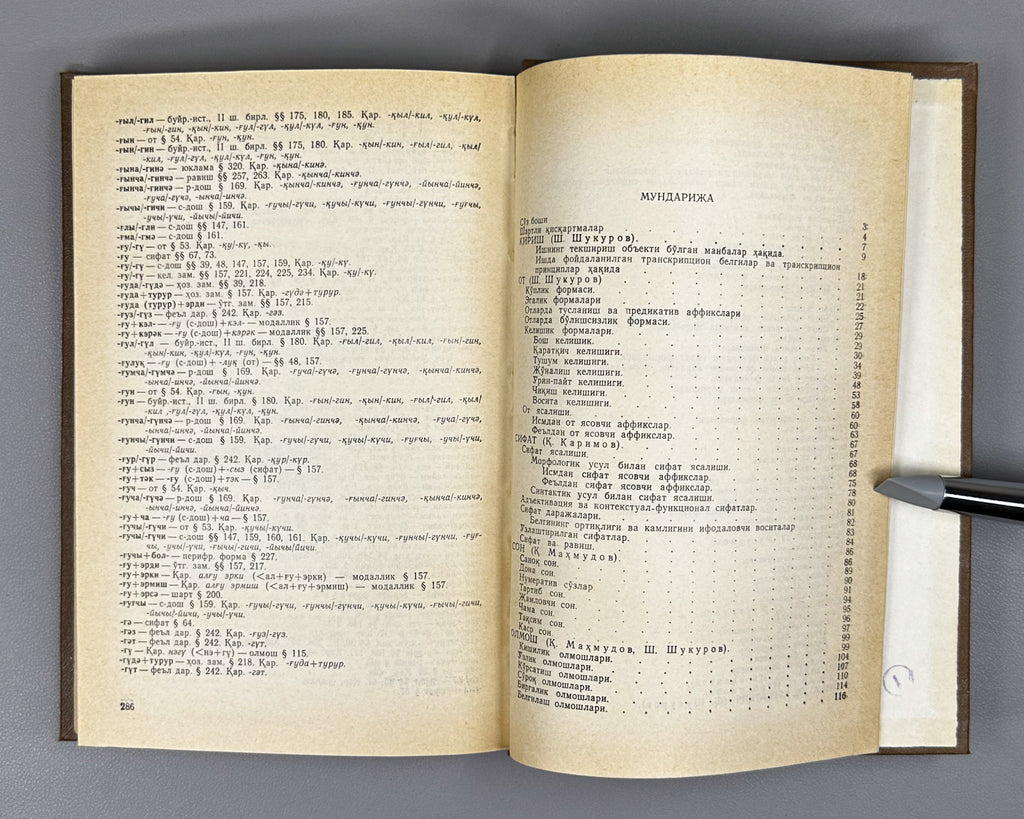 -ғыл/-гил — буйр.-ист., II ш. бирл. §§ 175, 180, 185. Қар. -қыл/-кил, -қул/-күл,
-ғын/-гин, -қын/-кин, -ғул/-гүл, -қул/-күл, -ғун, -қун.
-ғын — от § 54. Қар. -ғун, -қун.
-ғын/-гин — буйр.-ист., II ш. бирл. §§ 175, 180. Қар. -қын/-кин, -ғыл/-гил, -қыл/
-кил, -ғул/-гүл, -қул/-күл, -ғун, -қун.
-ғына/-гинә — юклама § 320. Қар. -қына/-кинә.
-ғынча/-гинчә — равиш §§ 257, 263. Қар. -қынча/-кинчә.
-ғынча/-гинчә — р-дош § 169. Қар. -қынча/-кинчә, -ғунча/-гүнчә, -йынча/-йинчә,
-ғуча/-гүчә, -ынча/-инчә.
-ғычы/-гичи — с-дош § 159. Қар. -ғучы/-гүчи, -қучы/-күчи, -ғунчы/-гүнчи, -ғуғчы,
-учы/-үчи, -йычы/-йичи.
-ғлы/-гли — с-дош §§ 147, 161.
-ғма/-гмә — с-дош § 161.
-ғу/-гү — от § 53. Қар. -қу/-кү, -қы.
-ғу — сифат §§ 67, 73.
-ғу/-гү — с-дош §§ 39, 48, 147, 157, 159. Қар. -қу/-кү.
-ғу/-гү — кел. зам. §§ 157, 221, 224, 225, 234. Қар. -қу/-кү.
-ғуда/-гүдә — ҳоз. зам. §§ 39, 218.
-ғуда+турур — ҳоз. зам. § 157. Қар. -гүдә+турур.
-ғуда (турур)+эрди — ўтг. зам. §§ 157, 215.
-ғуз/-гүз — феъл дар. § 242. Қар. -гәз.
-ғу+кэл- — -ғу (с-дош)+кэл- — модаллик § 157.
-ғу+кәрәк — -ғу (с-дош)+кәрәк — модаллик §§ 157, 225.
-ғул/-гүл — буйр.-ист., II ш. бирл. § 180. Қар. -ғыл/-гил, -қыл/-кил, -ғын/-гин,
-қын/-кин, -қул/-күл, -ғун, -қун.
-ғулуқ — -ғу (с-дош)+-луқ (от) — §§ 48, 157.
-ғумча/-гүмчә — р-дош § 169. Қар. -ғуча/-гүчә, -ғунча/-гүнчә, -қынча/-кинчә,
-ынча/-инчә, -йынча/-йинчә.
-ғун — от § 54. Қар. -ғын, -қун.
-ғун — буйр.-ист., II ш. бирл. § 180. Қар. -ғын/-гин, -қын/-кин, -ғыл/-гил, -қыл/
-кил ,-ғул/-гүл, -қул/-күл, -қун.
-ғунча/-гүнчә — р-дош § 169. Қар. -ғынча/-гинчә, -қынча/-кинчә, -ғуча/-гүчә,
-ынча/-инчә, -йынча/-йинчә.
-ғунчы/-гүнчи — с-дош § 159. Қар. -ғучы/-гүчи, -қучы/-күчи, -ғуғчы, -учы/-үчи,
-йычы/-йичи.
-ғур/-гүр — феъл дар. § 242. Қар. -қур/-күр.
-ғу+сыз — -ғу (с-дош)+-сыз (сифат) — § 157.
-ғу+тәк — -ғу (с-дош)+тәк — § 157.
-ғуч — от § 54. Қар. -қыч.
-ғуча/-гүчә — р-дош § 169. Қар. -ғунча/-гүнчә, -ғынча/-гинчә, -қынча/-кинчә,
-ынча/-инчә, -йынча/-йинчә.
-ғу+ча — -ғу (с-дош)+ча — § 157.
-ғучы/-гүчи — от § 53. Қар. -қучы/-күчи.
-ғучы/-гүчи — с-дош §§ 147, 159, 160, 161. Қар. -қучы/-күчи, -ғунчы/-гүнчи, -ғуғ-
чы, -учы/-үчи, -ғычы/-гичи, -йычы/-йичи.
-ғу+бол- — перифр. форма § 227.
-ғу+эрди — ўтг. зам. §§ 157, 217.
-ғу+эрки — Қар. алғу эрки (<ал+ғу+эрки) — модаллик § 157.
-ғу+эрмиш — Қар. алғу эрмиш (<ал+ғу+эрмиш) — модаллик § 157.
-ғу+эрсә — шарт § 200.
-ғуғчы — с-дош § 159. Қар. -ғучы/-гүчи, -ғунчы/-гүнчи, -қучы/-күчи, -ғычы/-гичи,
-йычы/-йичи, -учы/-үчи.
-гә — сифат § 64.
-гәз — феъл дар. § 242. Қар. -ғуз/-гүз.
-гәт — феъл дар. § 242. Қар. -гүт.
-гү — Қар. нәгү (<нә+гү) — олмош § 115.
-гүдә+турур — ҳоз. зам. § 218. Қар. -ғуда+турур.
-гүт — феъл дар. § 242. Қар. -гәт.
286
МУНДАРИЖА
Сўз боши
Шартли қисқартмалар 3
КИРИШ (Ш. Шукуров). 4
Ишнинг текшириш объекти бўлган манбалар ҳақида. 7
Ишда фойдаланилган транскрипцион белгилар ва транскрипцион 9
принциплар ҳақида
ОТ (Ш. Шукуров) 18
Кўплик формаси. 21
Эгалик формалари 21
Отларда тусланиш ва предикатив аффикслари 22
Отларда бўлишсизлик формаси. 25
Келишик формалари. 27
Бош келишик. 29
Қаратқич келишиги. 29
Тушум келишиги. 30
Жўналиш келишиги. 34
Ўрин-пайт келишиги. 39
Чиқиш келишиги. 48
Восита келишиги. 53
От ясалиши. 58
Исмдан от ясовчи аффикслар. 60
Феълдан от ясовчи аффикслар. 60
СИФАТ (Қ. Каримов). 63
Сифат ясалиши. 67
Морфологик усул билан сифат ясалиши. 68
Исмдан сифат ясовчи аффикслар. 68
Феълдан сифат ясовчи аффикслар. 75
Синтактик усул билан сифат ясалиши. 78
Адъективация ва контекстуал-функционал сифатлар. 80
Сифат даражалари. 81
Белгининг ортиқлиги ва камлигини ифодаловчи воситалар 82
Узлаштирилган сифатлар. 83
Сифат ва равиш. 84
СОН (Қ. Маҳмудов). 86
Саноқ сон. 86
Дона сон. 89
Нумератив сўзлар 90
Тартиб сон. 91
Жамловчи сон. 94
Чама сон. 95
Тақсим сон. 96
Каср сон. 97
ОЛМОШ (Қ. Маҳмудов, Ш. Шукуров). 99
Кишилик олмошлари. 99
Ўзлик олмошлари. 104
Кўрсатиш олмошлари. 107
Сўроқ олмошлари. 110
Биргалик олмошлари. 114
Белгилаш олмошлари. 116